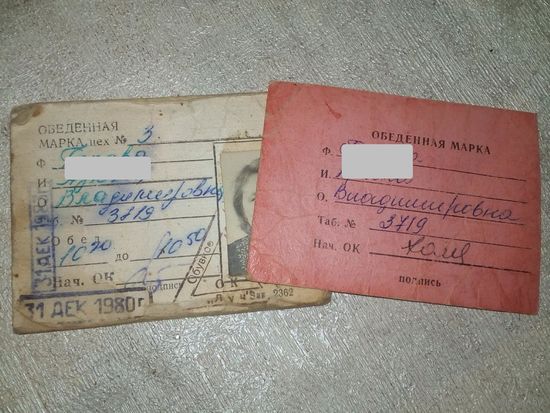 ОБЕДЕННАЯ
МАРКА цех № 3.
Ф.
И.
Владимировна
б. № 3719
Обе
10 20 до 10 50
Нач. ОК
подпись
31 ДЕК 1980
31 ДЕК 1980 г
Обувное
О К
"Луч" Зак 2362
ОБЕДЕННАЯ МАРКА
Ф.
И.
О. Владимировна
Таб. № 3719
Нач. ОК
подпись